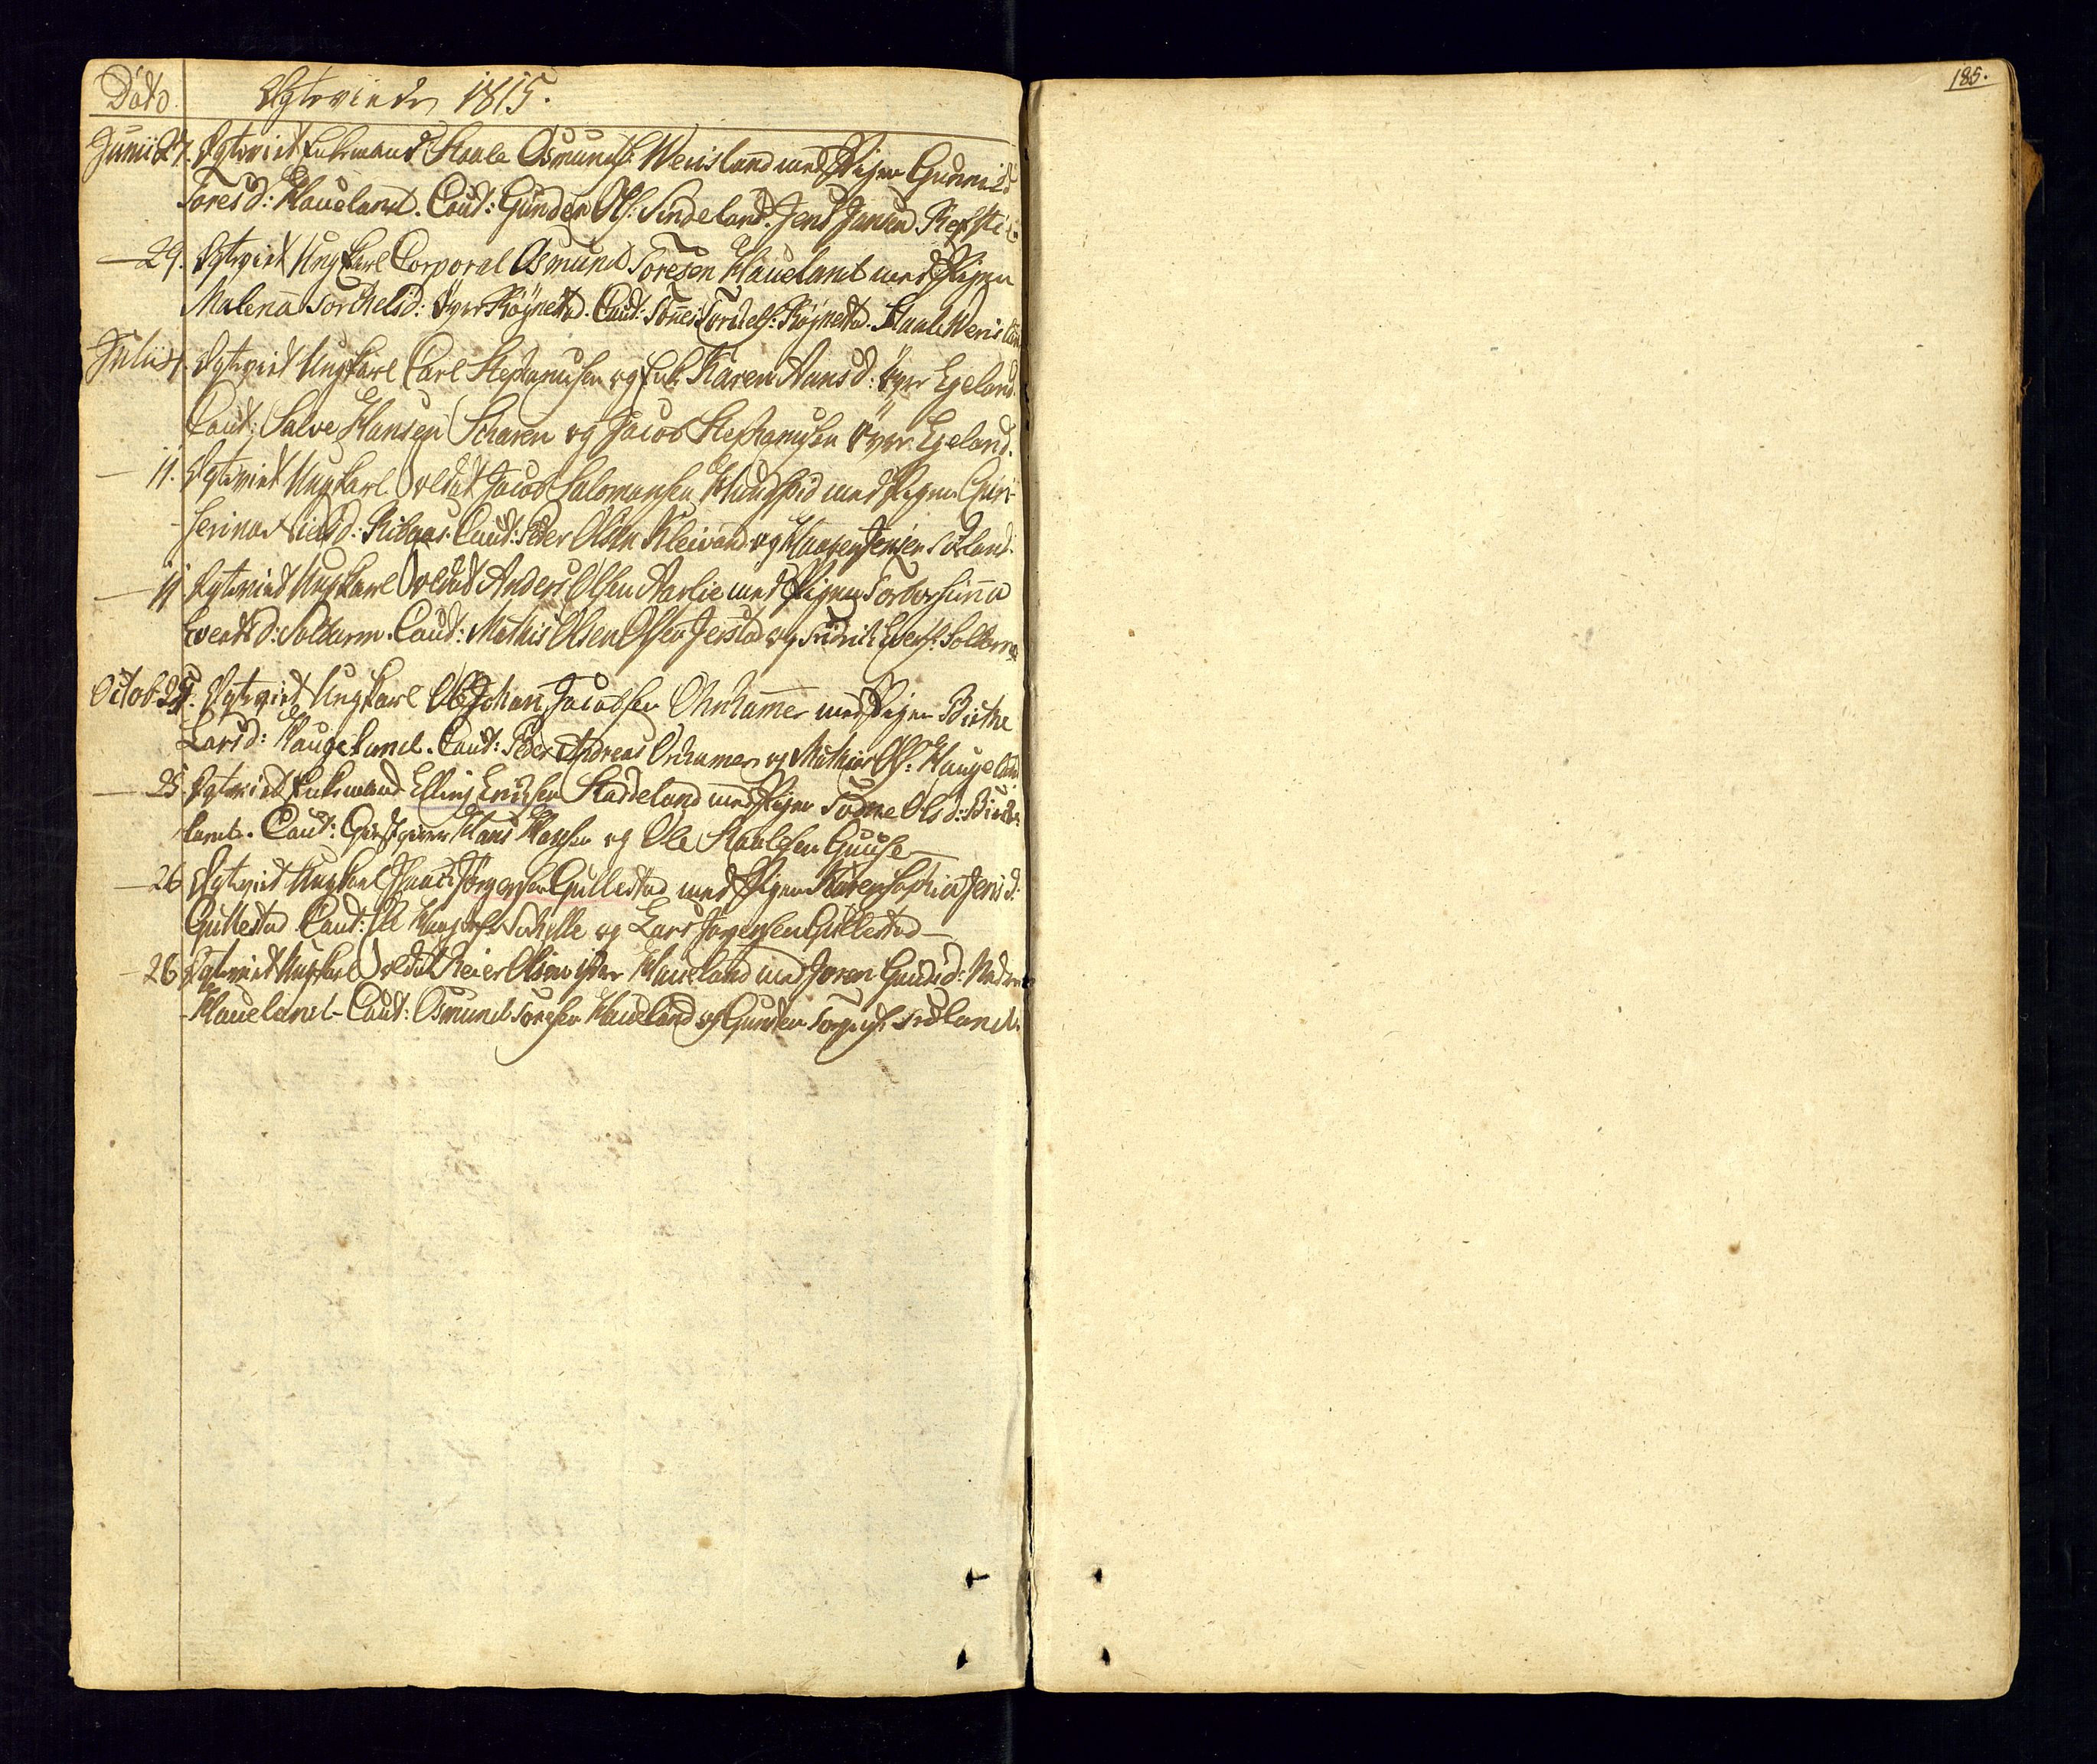 Dato. Egteviede 1815.
185.
Junii 27. Egteviet Enkemand Staale Osmunds: Werisland med Pigen Gunnild
Toresd: Haueland. Caut: Gunder Ols: Sindeland. Jens Jensen Refsti
— 29. Egteviet Ungkarl Corporal Osmund Toresen Haueland med Pigen
Malena Torkelsd: Øvre Røgnestad. Caut: Tønnes Torkels: Røgnestad. Staale Werisland
Julii 4. Egteviet Ungkarl Carl Stephansen og Enke Karen Hansd: Øvre Egeland.
Caut: Salve Hansen Scharen og Jacob Stephansen Øvre Egeland.
— 11. Egteviet Ungkarl Soldat Jacob Salomonsen med Pigen
Nielsd: Ribaas. Caut: Peder Olsen Kleivand og Haagen Jensen
— 11 Egteviet Ungkarl Soldat Anders Olsen Aarlie med Pigen Torborginna
Evertsd: Soldarm. Caut: Mathis Olsen Jerstad og Fridrik Everts:
Octob 24. Egteviet Ungkarl Ole Johan Jacobsen Ohrhammer med Pigen Birthe
Larsd: Haugeland. Caut: Peder Andreas Orhamer og Mathias Ols: Haugeland
— 25. Egteviet Enkemand Elling Erichsen Staddeland med Pigen Todne Olsd: Birke-
land. Caut: Giestgiver Hans Hansen og Ole Staalesen
— 26 Egteviet Ungkarl Hans Jørgensen Gullestad med Pigen Karen Sophia Jensd:
Gullestad. Caut: og Lars Jørgensen Gullestad —
— 26 Egteviet Ungkarl Soldat Reier Olsen Haueland med Joren Gundsd: Nedre
Haueland — Caut: Osmund Toresen Haueland og Gunder